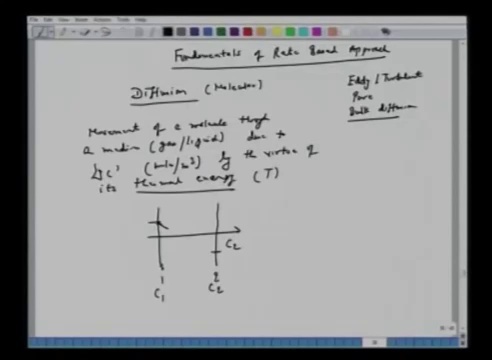 Fundamentals of Rate Based Approach
Diffusion (Molecular)
Eddy / Turbulent
Pore
Bulk diffusion
Movement of a molecule through
a medium (gas/liquid) due to
'Δc' (mole/m³) by the virtue of
its thermal energy (T)
C₂
1 2
C₁ C₂